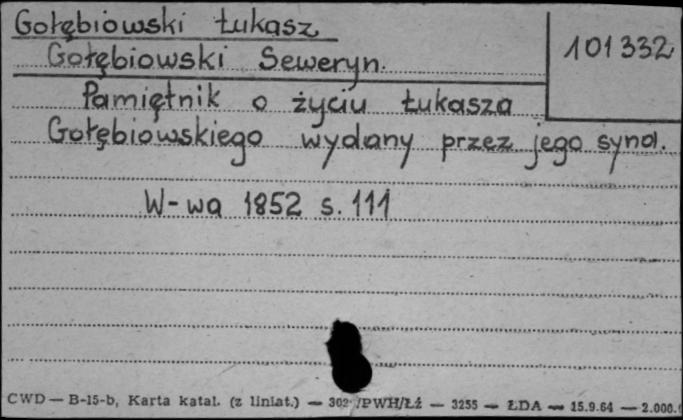 Gołębiowski Łukasz
101332
Gołębiowski Seweryn.
Pamiętnik o życiu Łukasza
Gołębiowskiego wydany przez jego syna.
W-wa 1852 s. 111
CWD — B-15-b, Karta katal. (z liniat.) — 302 /PWH/Łź — 3255 — ŁDA — 15.9.64 — 2.000.